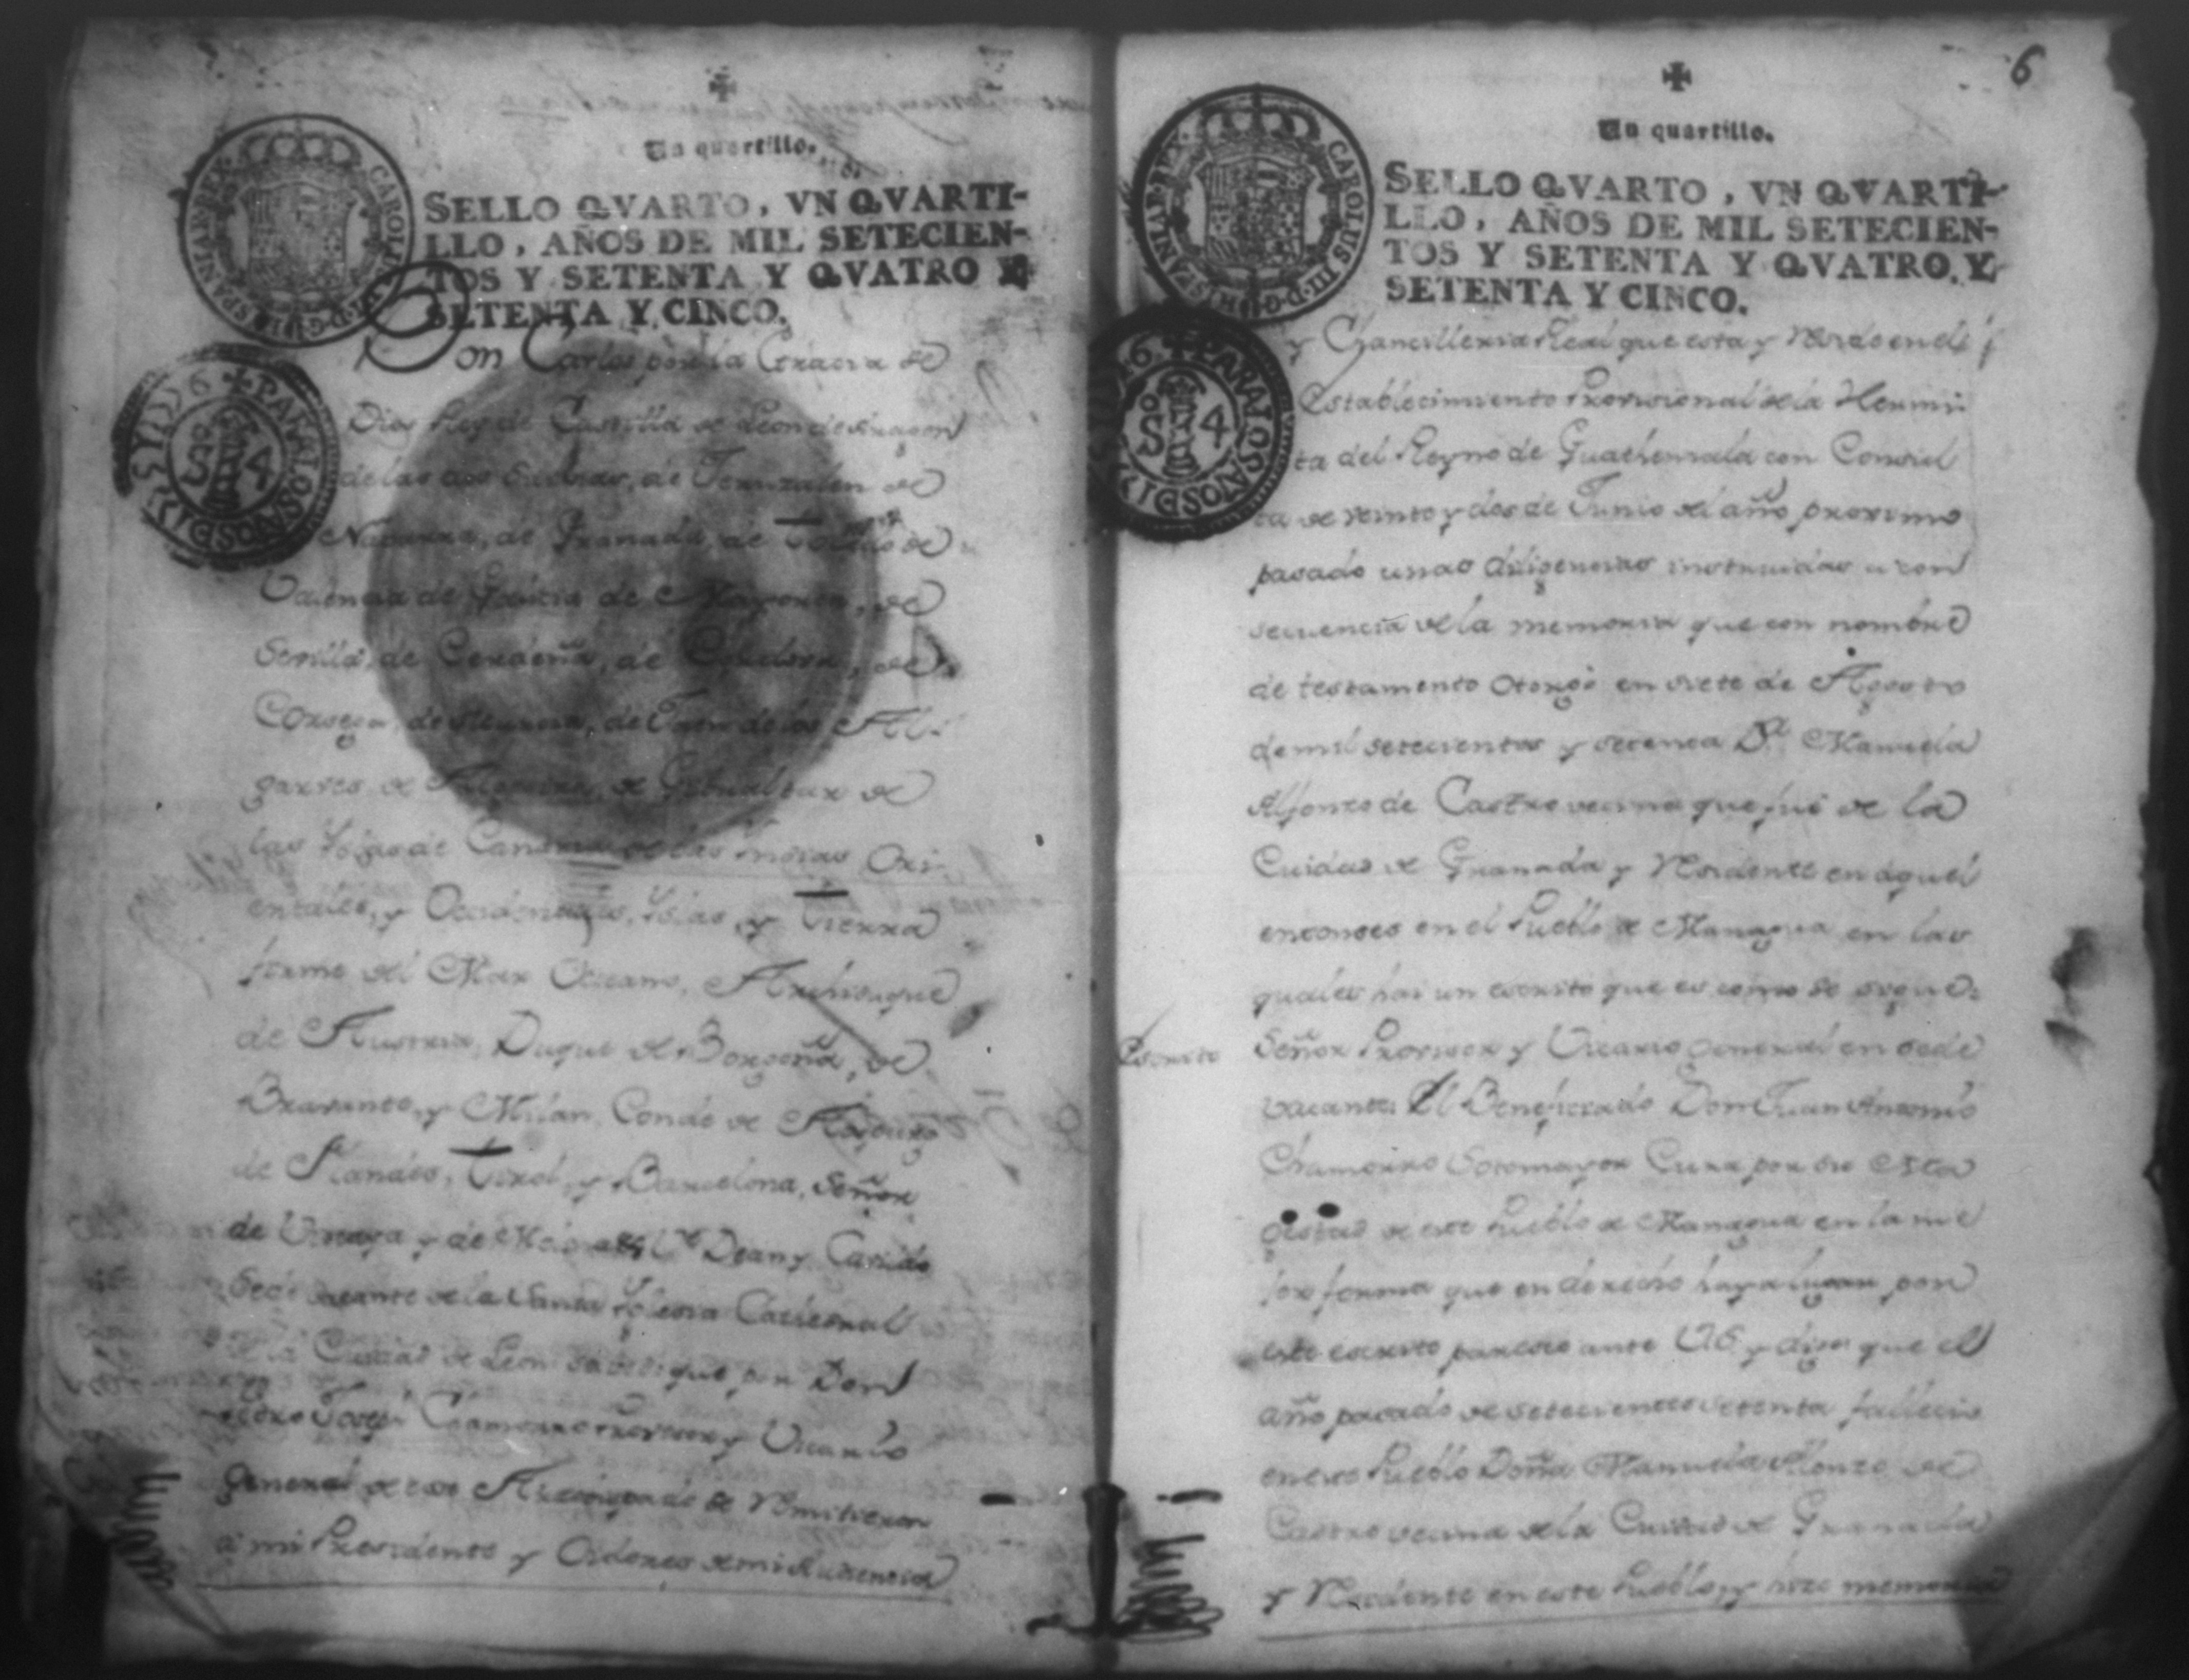 Un quartillo.
SELLO QVARTO, VN QVARTI-
LLO, AÑOS DE MIL SETECIEN-
TOS Y SETENTA Y QVATRO Y
SETENTA Y CINCO.
HISPANIAR. REX. CAROLUS III. D. G.
PARA LOS AÑOS DE 1775 Y 76
SO 4
Don Carlos por la Gracia de
Dios Rey de Castilla de Leon de Aragon
de las dos Sicilias, de Jeruzalen de
Navarra, de Granada, de Toledo de
Valencia de Galicia de Mayorca, de
Sevilla, de Cerdeña, de Cordova, de
Corsega, de Murcia, de Jaen de los Al-
garves de Algecira de Gibraltar de
las Yslas de Canaria de las Indias Ori-
entales, y Occidentales, Yslas, y Tierra
firme del Mar Occeano, Archiduque
de Austria, Duque de Borgoña, de
Bravante, y Milan, Conde de
de Flandes, Tirol, y Barcelona, Señor
de Viscaya y de Molina Ve. Dean y Cavildo
Sede vacante de la Santa Yglesia Cathedral
de la Ciudad de Leon saved que por Don
Pedro Joseph Chamorro Provisor y Vicario
general de ese se Remitieron
a mi Presidente y Oidores de mi Audiencia
6
Un quartillo.
SELLO QVARTO, VN QVARTI-
LLO, AÑOS DE MIL SETECIEN-
TOS Y SETENTA Y QVATRO, Y
SETENTA Y CINCO.
HISPANIAR. REX. CAROLUS III. D. G.
PARA LOS AÑOS DE 1775 Y 76
SO 4
y Chancilleria Real que esta y Reside en el
Establecimiento Provicional de la Hermi
ta del Reyno de Guathemala con Consul
ta de veinte y dos de Junio del año proximo
pasado unas diligencias instruidas a con
secuencia de la memoria que con nombre
de testamento otorgó en siete de Agosto
de mil setecientos y setenta Da. Manuela
Alfonzo de Castro vecina que fué de la
Cuidad de Granada y Recidente en aquel
entonces en el Pueblo de Managua en las
quales hai un escrito que es como se sigue.
Escrito Señor Provisor y Vicario general en sede
vacante. El Beneficiado Don Juan Antonio
Chamorro Sotomayor Cura por su Ma
gestad de este Pueblo de Managua en la me
jor forma que en derecho haya lugar por
este escrito paresco ante VS y digo que el
año pasado de setecientos setenta fallecio
en este Pueblo Doña Manuela Alfonzo de
Castro vecina de la Cuidad de Granada
y Recidente en este Pueblo, y hizo memoria